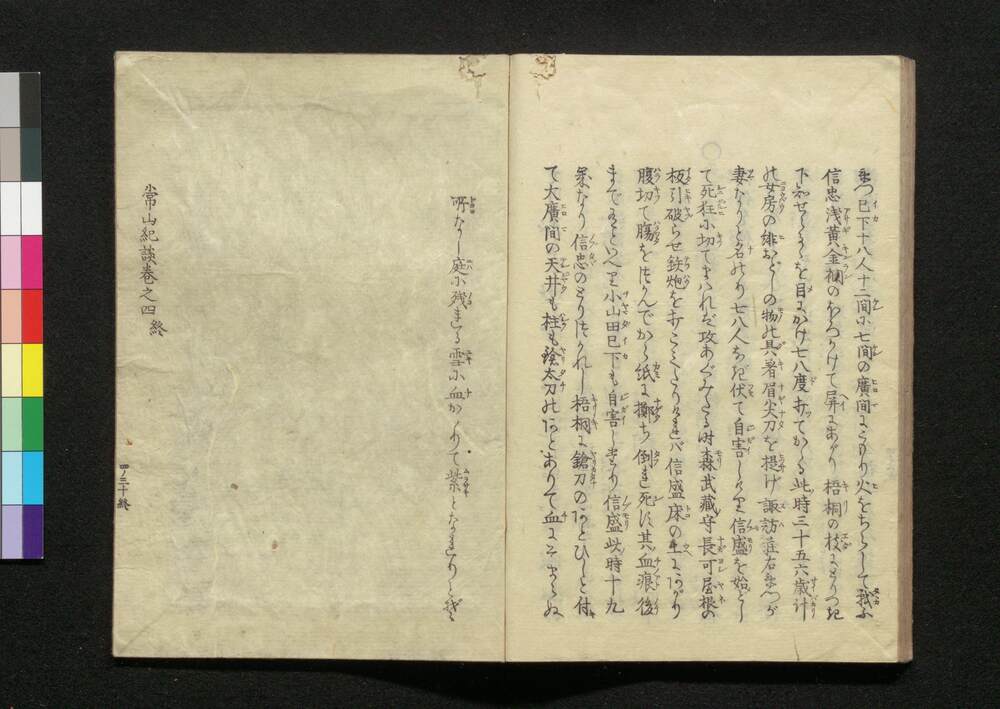 巳下十八人十二間に七間の廣間にこもり火をちらして戦ふ
信忠浅黄金襴のほろかけて屏にあがり梧桐の枝にとりつき
下知せらるゝを目にかけ七八度打てかゝる此時三十五六歳計
の女房の緋おどしの物の具着眉尖刀を提げ諏訪荘右衛門が
妻なりと名のり七八人なぎ伏て自害しけり信盛を始として
て死狂に切てまはれば攻あぐみたる時森武藏守長可屋根の
板引破らせ鉄炮を打こみたりければ信盛床の上にあがり
腹切て腸をつかんでから紙に擲ち倒れ死す其血痕後
までありといへり小山田巳下も自害しけり信盛此時十九
歳なり信忠のとりつかれし梧桐に鎗刀のあとひしと付
て大廣間の天井も柱も鎗太刀のあとありて血にそまらぬ
所なし庭に残れる雪に血かゝりて紫となれりとぞ
常山紀談巻之四終
四ノ三十終